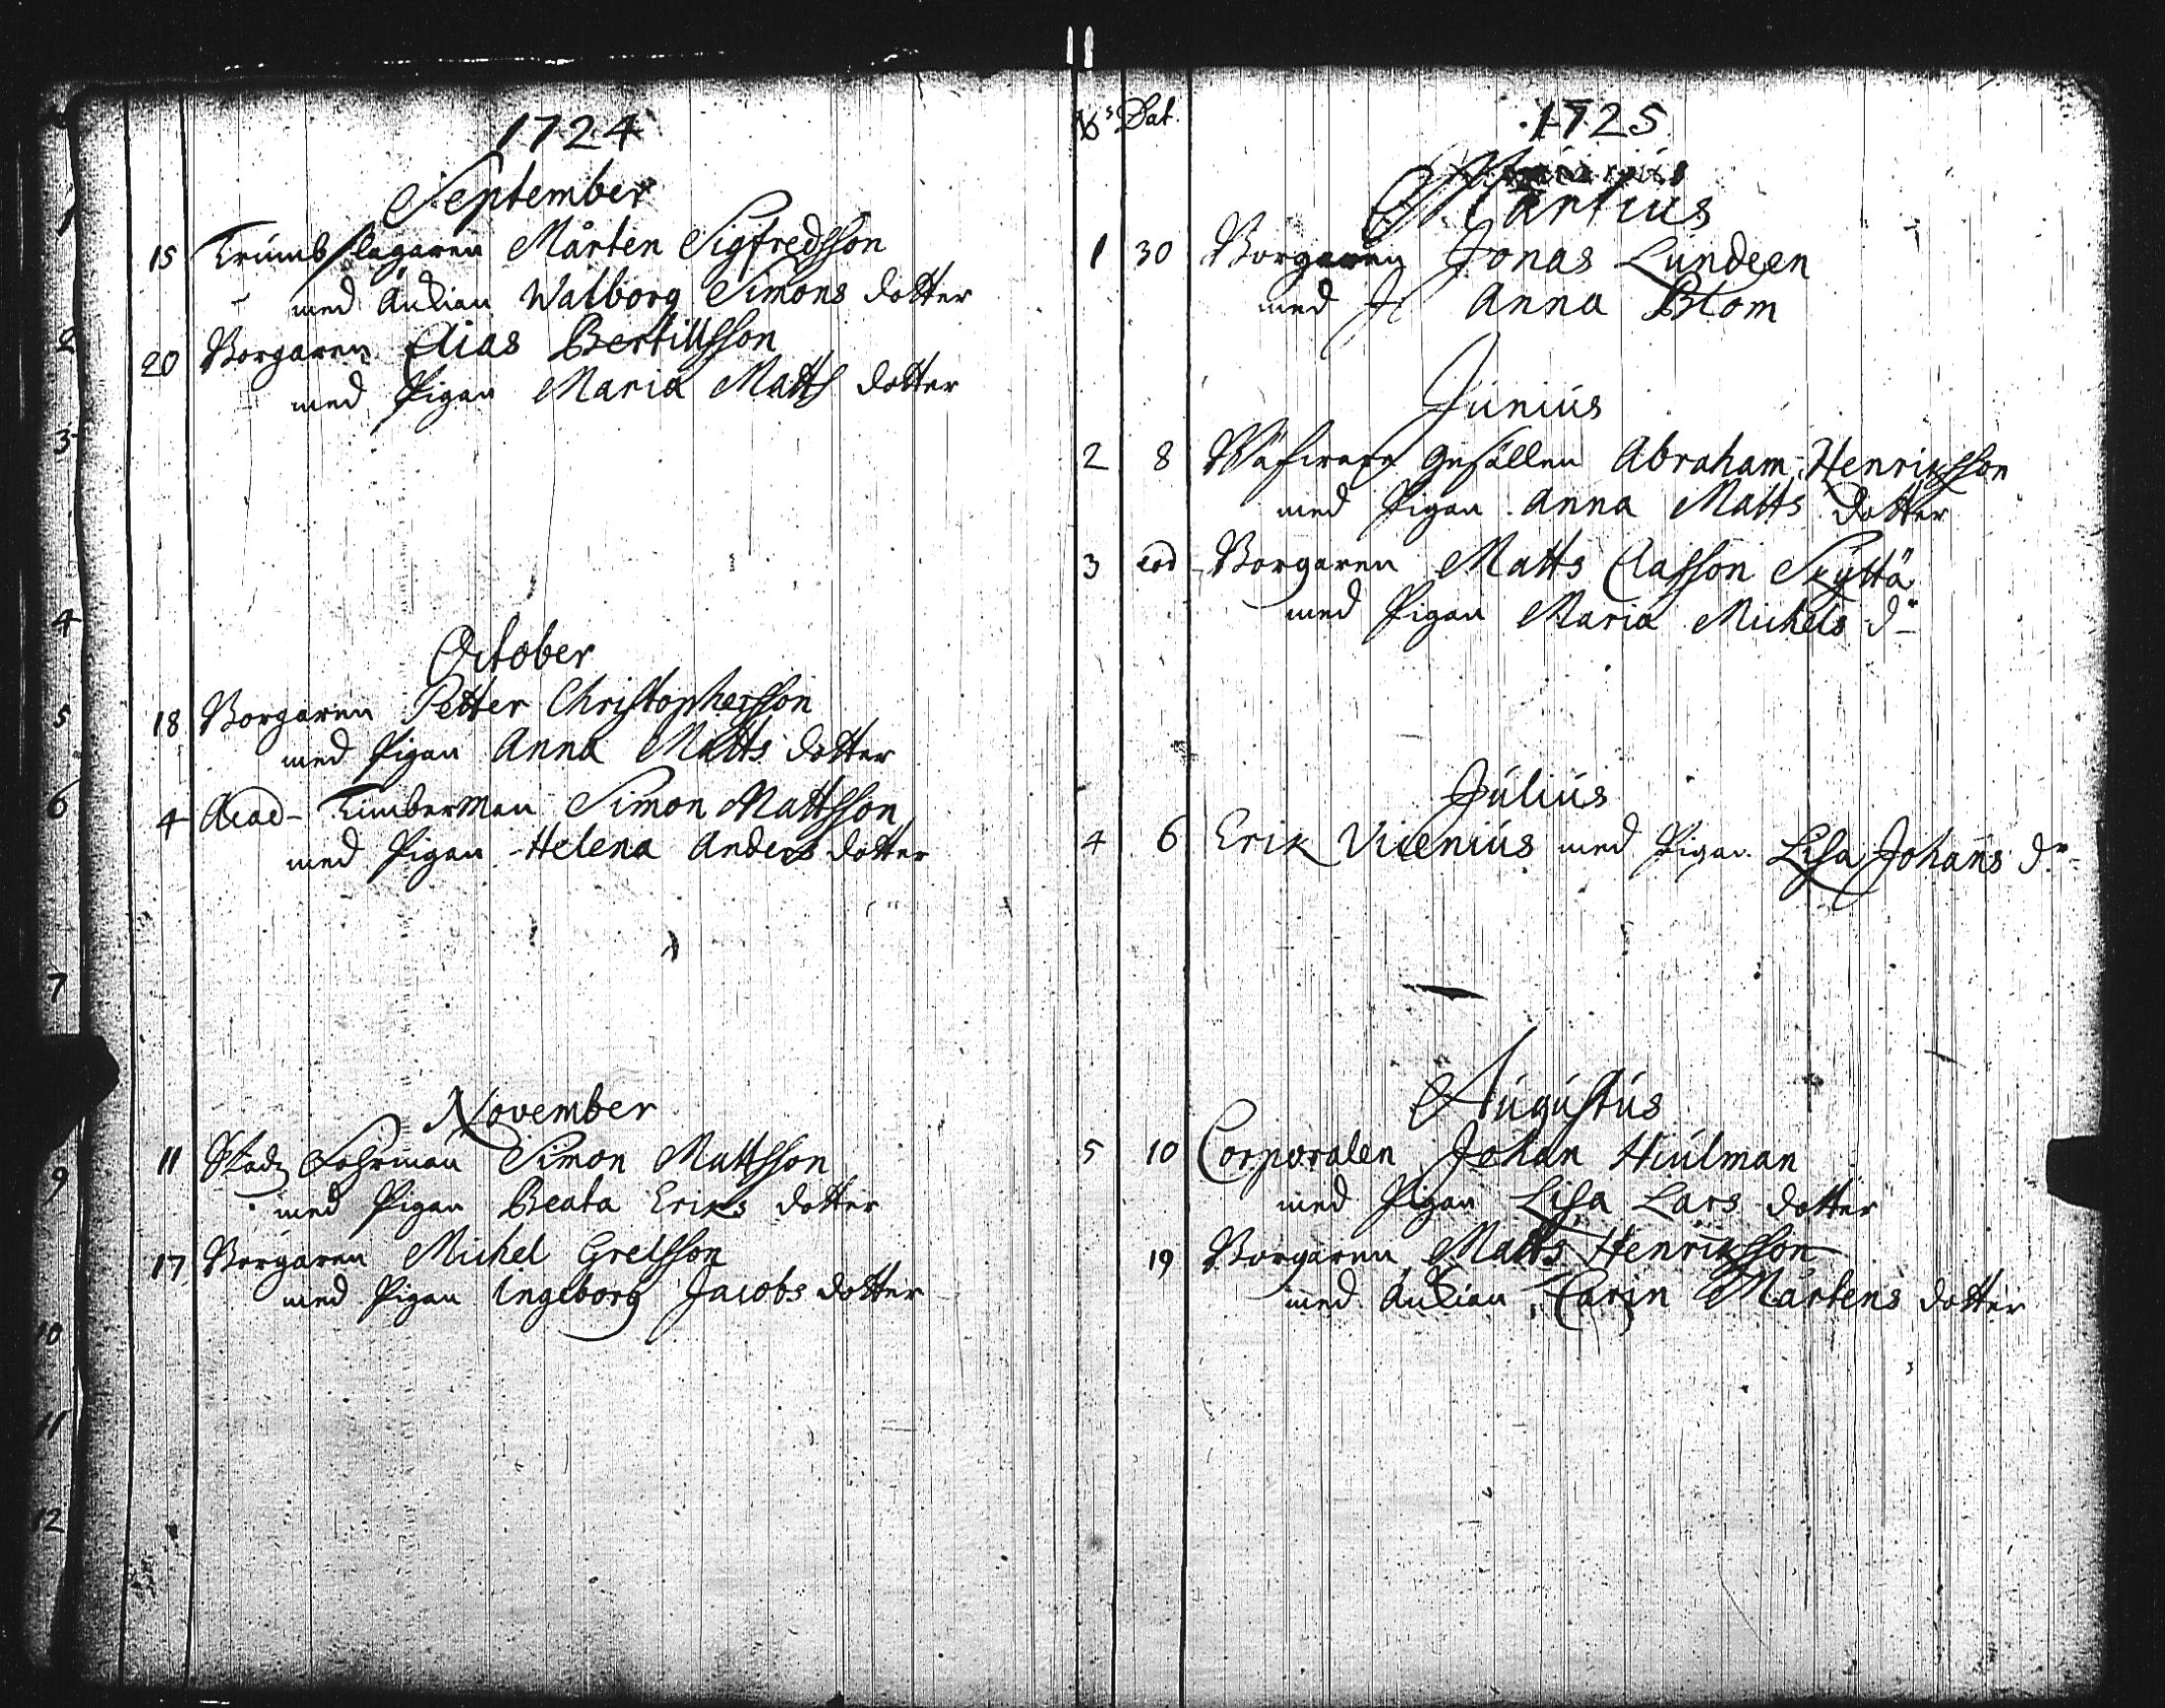 1724
September
15 Trumbslagaren Mårten Sigfredsson
med Änkian Walborg Simons dotter
20 Borgaren Elias Bertillsson
med Pigan Maria Matts dotter
October
18 Borgaren Petter Christophersson
med Pigan Anna Matts dotter
4 Acad- Timberman Simon Mattsson
med Pigan Helena Anders dotter
November
11 Stadz Fohrman Simon Mattsson
med Pigan Beata Eriks dotter
17 Borgaren Michel Grelsson
med Pigan Ingeborg Jacobs dotter
1
2
3
4
5
6
7
9
10
11
12
Dat.
1725
Martius
1 30 Borgaren Jonas Lundeen
med J Anna Blom
Junius
2 8 Gesällen Abraham Henriksson
med Pigan Anna Matts dotter
3 eod Borgaren Matts Classon Skyttä
med Pigan Maria Michels d
Julius
4 6 Erik Vicenius med Pigan Lisa Johans dr
Augustus
5 10 Corporalen Johan Hiulman
med Pigan Lisa Lars dotter
19 Borgaren Matts Henriksson
med Änkian Carin Mårtens dotter